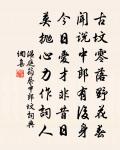 古坟零落野花春
闻说中郎有后身
今日爱才非昔日
莫抛心力作词人
温庭筠蔡中郎坟词典
网喜